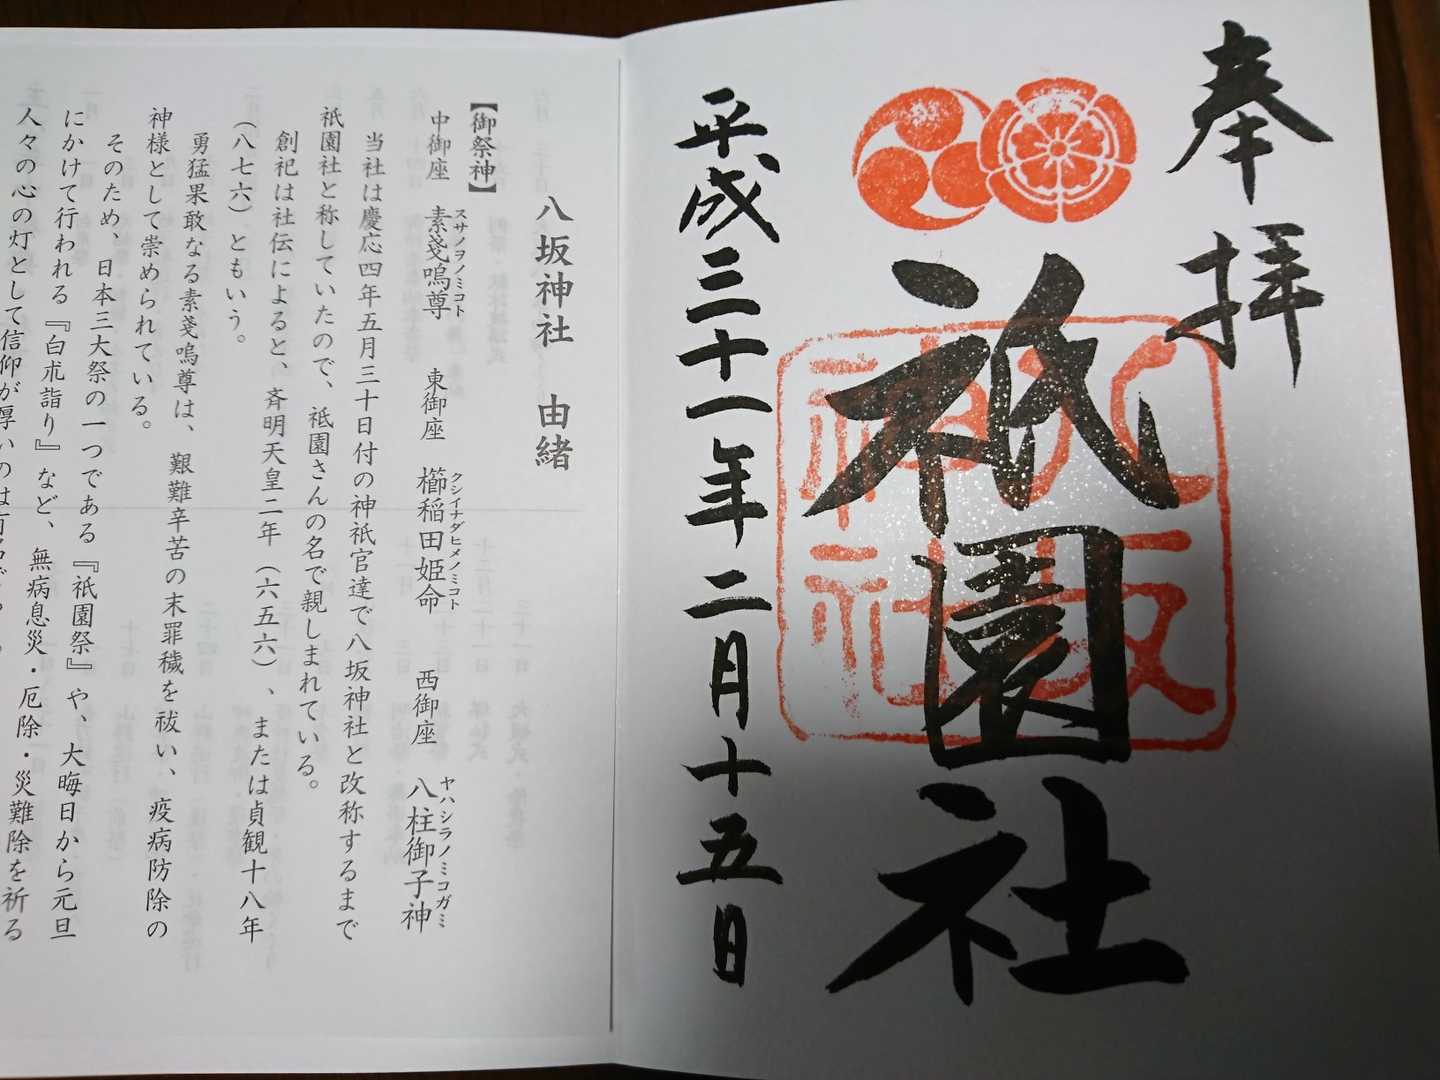 奉拝
祇園社
八坂神社
平成三十一年二月十五日
八坂神社 由緒
【御祭神】
中御座 素戔嗚尊 東御座 櫛稲田姫命 西御座 八柱御子神
スサノヲノミコト クシイナダヒメノミコト ヤハシラノミコガミ
当社は慶応四年五月三十日付の神祇官達で八坂神社と改称するまで
祇園社と称していたので、祇園さんの名で親しまれている。
創祀は社伝によると、斉明天皇二年（六五六）、または貞観十八年
（八七六）ともいう。
勇猛果敢なる素戔嗚尊は、艱難辛苦の末罪穢を祓い、疫病防除の
神様として崇められている。
そのため、日本三大祭の一つである『祇園祭』や、大晦日から元旦
にかけて行われる『白朮詣り』など、無病息災・厄除・災難除を祈る
人々の心の灯として信仰が厚いのは